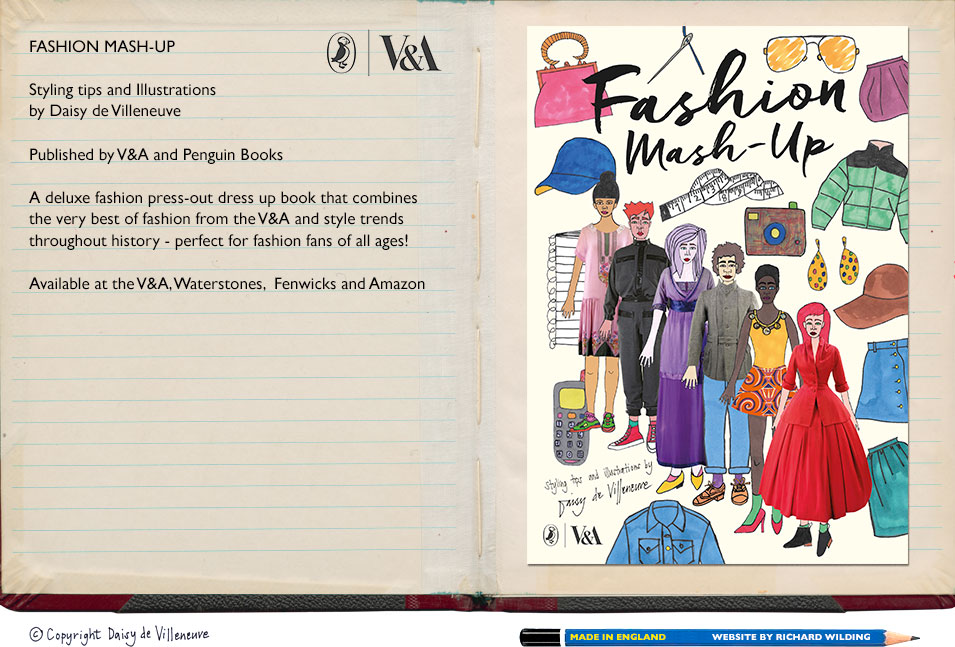 FASHION MASH-UP
V&A
Styling tips and Illustrations
by Daisy de Villeneuve
Published by V&A and Penguin Books
A deluxe fashion press-out dress up book that combines
the very best of fashion from the V&A and style trends
throughout history - perfect for fashion fans of all ages!
Available at the V&A, Waterstones, Fenwicks and Amazon
Fashion
Mash-Up
styling tips and illustrations by
Daisy de Villeneuve
V&A
© Copyright Daisy de Villeneuve
MADE IN ENGLAND
WEBSITE BY RICHARD WILDING